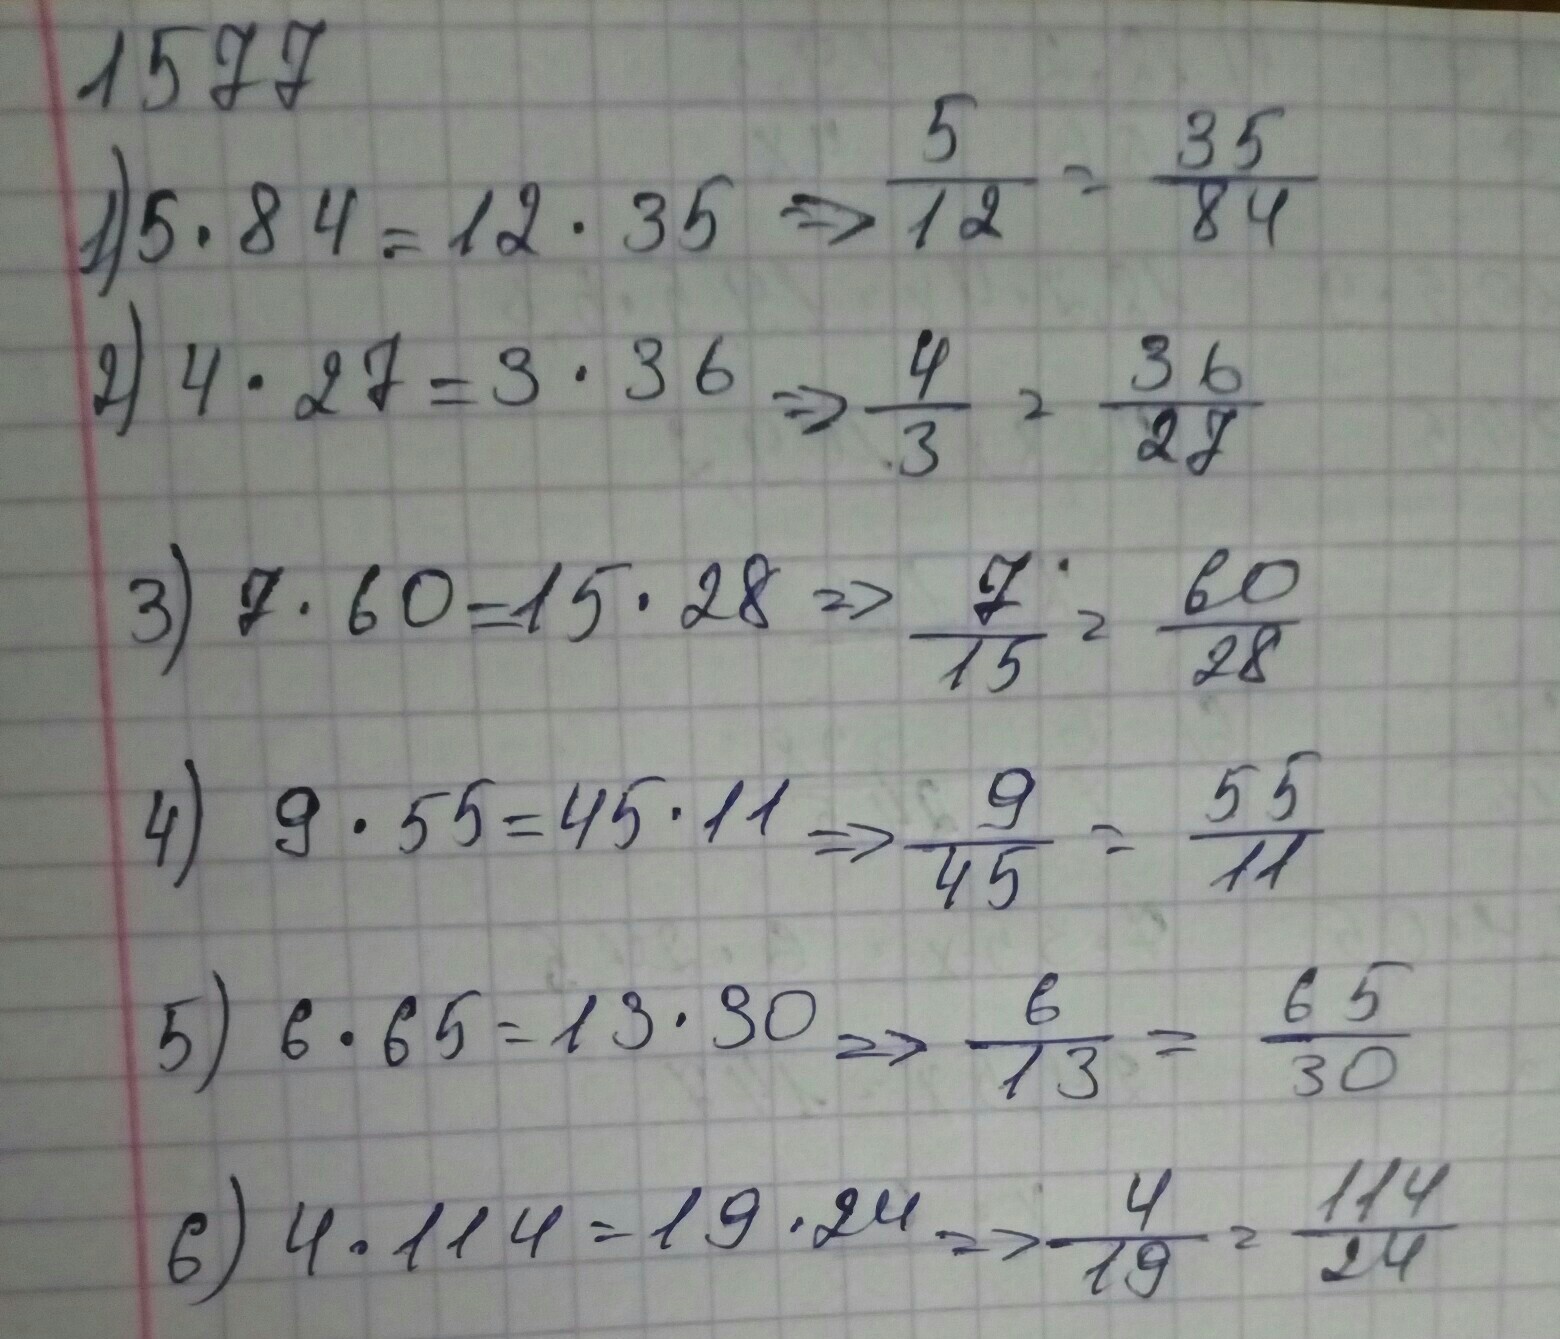 1577
1) 5 · 84 = 12 · 35 => 5/12 = 35/84
2) 4 · 27 = 3 · 36 => 4/3 = 36/27
3) 7 · 60 = 15 · 28 => 7/15 = 60/28
4) 9 · 55 = 45 · 11 => 9/45 = 55/11
5) 6 · 65 = 13 · 30 => 6/13 = 65/30
6) 4 · 114 = 19 · 24 => 4/19 = 114/24